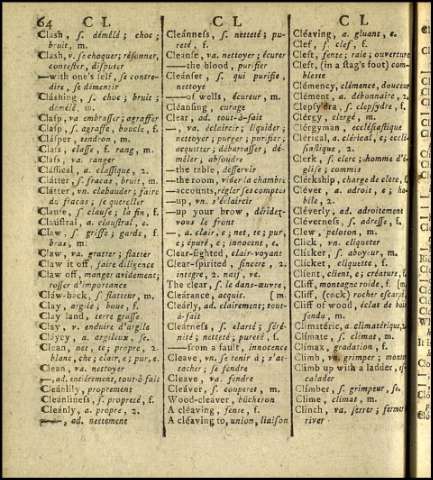 64 C L
C L
C L
Clash, ſ. démélé; choc;
bruit, m.
Clash, v. ſe choquer; réſonner,
conteſter, diſputer
—with one's ſelf, ſe contre-
dire, ſe dimentir
Claſhing, ſ. choc; bruit;
démélé, m.
Claſp, va. embraſſer; agraffer
Claſp, ſ. agraffe, boucle, f.
Claſper, tendron, m.
Claſs, claſſe, f. rang, m.
Claſs, va. ranger
Claſſical, a. claſſique, 2.
Clátter, ſ. fracas, bruit, m.
Clátter, vn. clabauder; faire
du fracas; ſe quereller
Clauſe, ſ. clauſe; la fin, f.
Clauſtral, a. clauſtral, e.
Claw, ſ. griffe; garde, f.
bras, m.
Claw, va. gratter; flatier
Claw it off, faire diligence
Claw off, manger avidement;
roſſer d'importance
Claw-back, ſ. flatteur, m.
Clay, argile; boue, f.
Clay land, terre graſſe
Clay, v. enduire d'argile
Cláycy, a. argileux, ſe.
Clean, net, te; propre, 2.
blanc, che; clair, e; pur, e.
Clean, va. nettoyer
—, ad. entiérement, tout-à fait
Cleánlily, proprement
Cleánlineſs, ſ. propreté, f.
Cleánly, a. propre, 2.
—, ad. nettement
Cleánneſs, ſ. netteté; pu-
reté, f.
Cleanſe, va. nettoyer; écurer
—the blood, purifier
Cleánſer, ſ. qui purifie,
nettoye
—of wells, écureur, m.
Cleánſing, curage
Clear, ad. tout-à-fait
—, va. éclaircir; liquider;
nettoyer; purger; purifier;
acquitter; débarraſſer; dé-
mêler; abſoudre
—the table, deſſervir
—the room, vider la chambre
—accounts, régler ſes comptes
—up, vn. s'éclaircir
—up your brow, déridez-
vous le front
—, a. clair, e; net, te; pur,
e; épuré, e; innocent, e.
Clear-ſighted, clair-voyant
Clear-ſpirited, ſincere, 2.
integre, 2. naif, ve.
The clear, ſ. le dans-œuvre,
Clearance, acquit. [m.
Cleárly, ad. clairement; tout-
à-fait
Cleárneſs, ſ. clarté; ſéré-
nité; netteté; pureté, f.
—from a fault, innocence
Cleave, vn. ſe tenir à; s'at-
tacher; ſe fendre
Cleave, va. fendre
Cleáver, ſ. couperet, m.
Wood-cleaver, bûcheron
A cleáving, fente, f.
A cleáving to, union, liaiſon
Cléaving, a. gluant, e.
Clef, ſ. clef, f.
Cleft, fente; raie; ouverture
Cleft, (in a ſtag's foot) com-
bleſte
Clémency, clémence, douceur
Clément, a. débonnaire, 2.
Clepſydra, ſ. clepſydre, f.
Clérgy, clergé, m.
Clérgyman, eccléſiaſtique
Clérical, a. clérical, e; eccle-
ſiaſtique, 2.
Clerk, ſ. clerc; homme d'é-
gliſe; commis
Clerkship, charge de clerc, f.
Cléver, a. adroit, e; ha-
bile, 2.
Cléverly, ad. adroitement
Cléverneſs, ſ. adreſſe, f.
Clew, peloton, m.
Click, vn. cliqueter
Clicker, ſ. aboyeur, m.
Clicket, cliquette, f.
Client, client, e; créature, f.
Cliff, montagne roide, f. [m.
Cliff, (rock) rocher eſcarpé,
Cliff of wood, éclat de bois
fendu, m.
Climatéric, a. climatérique, 2.
Climate, ſ. climat, m.
Climax, gradation, f.
Climb, va. grimper; monter
Climb up with a ladder, eſ-
calader
Climber, ſ. grimpeur, ſe.
Clime, climat, m.
Clinch, va. ſerrer; fermer
river